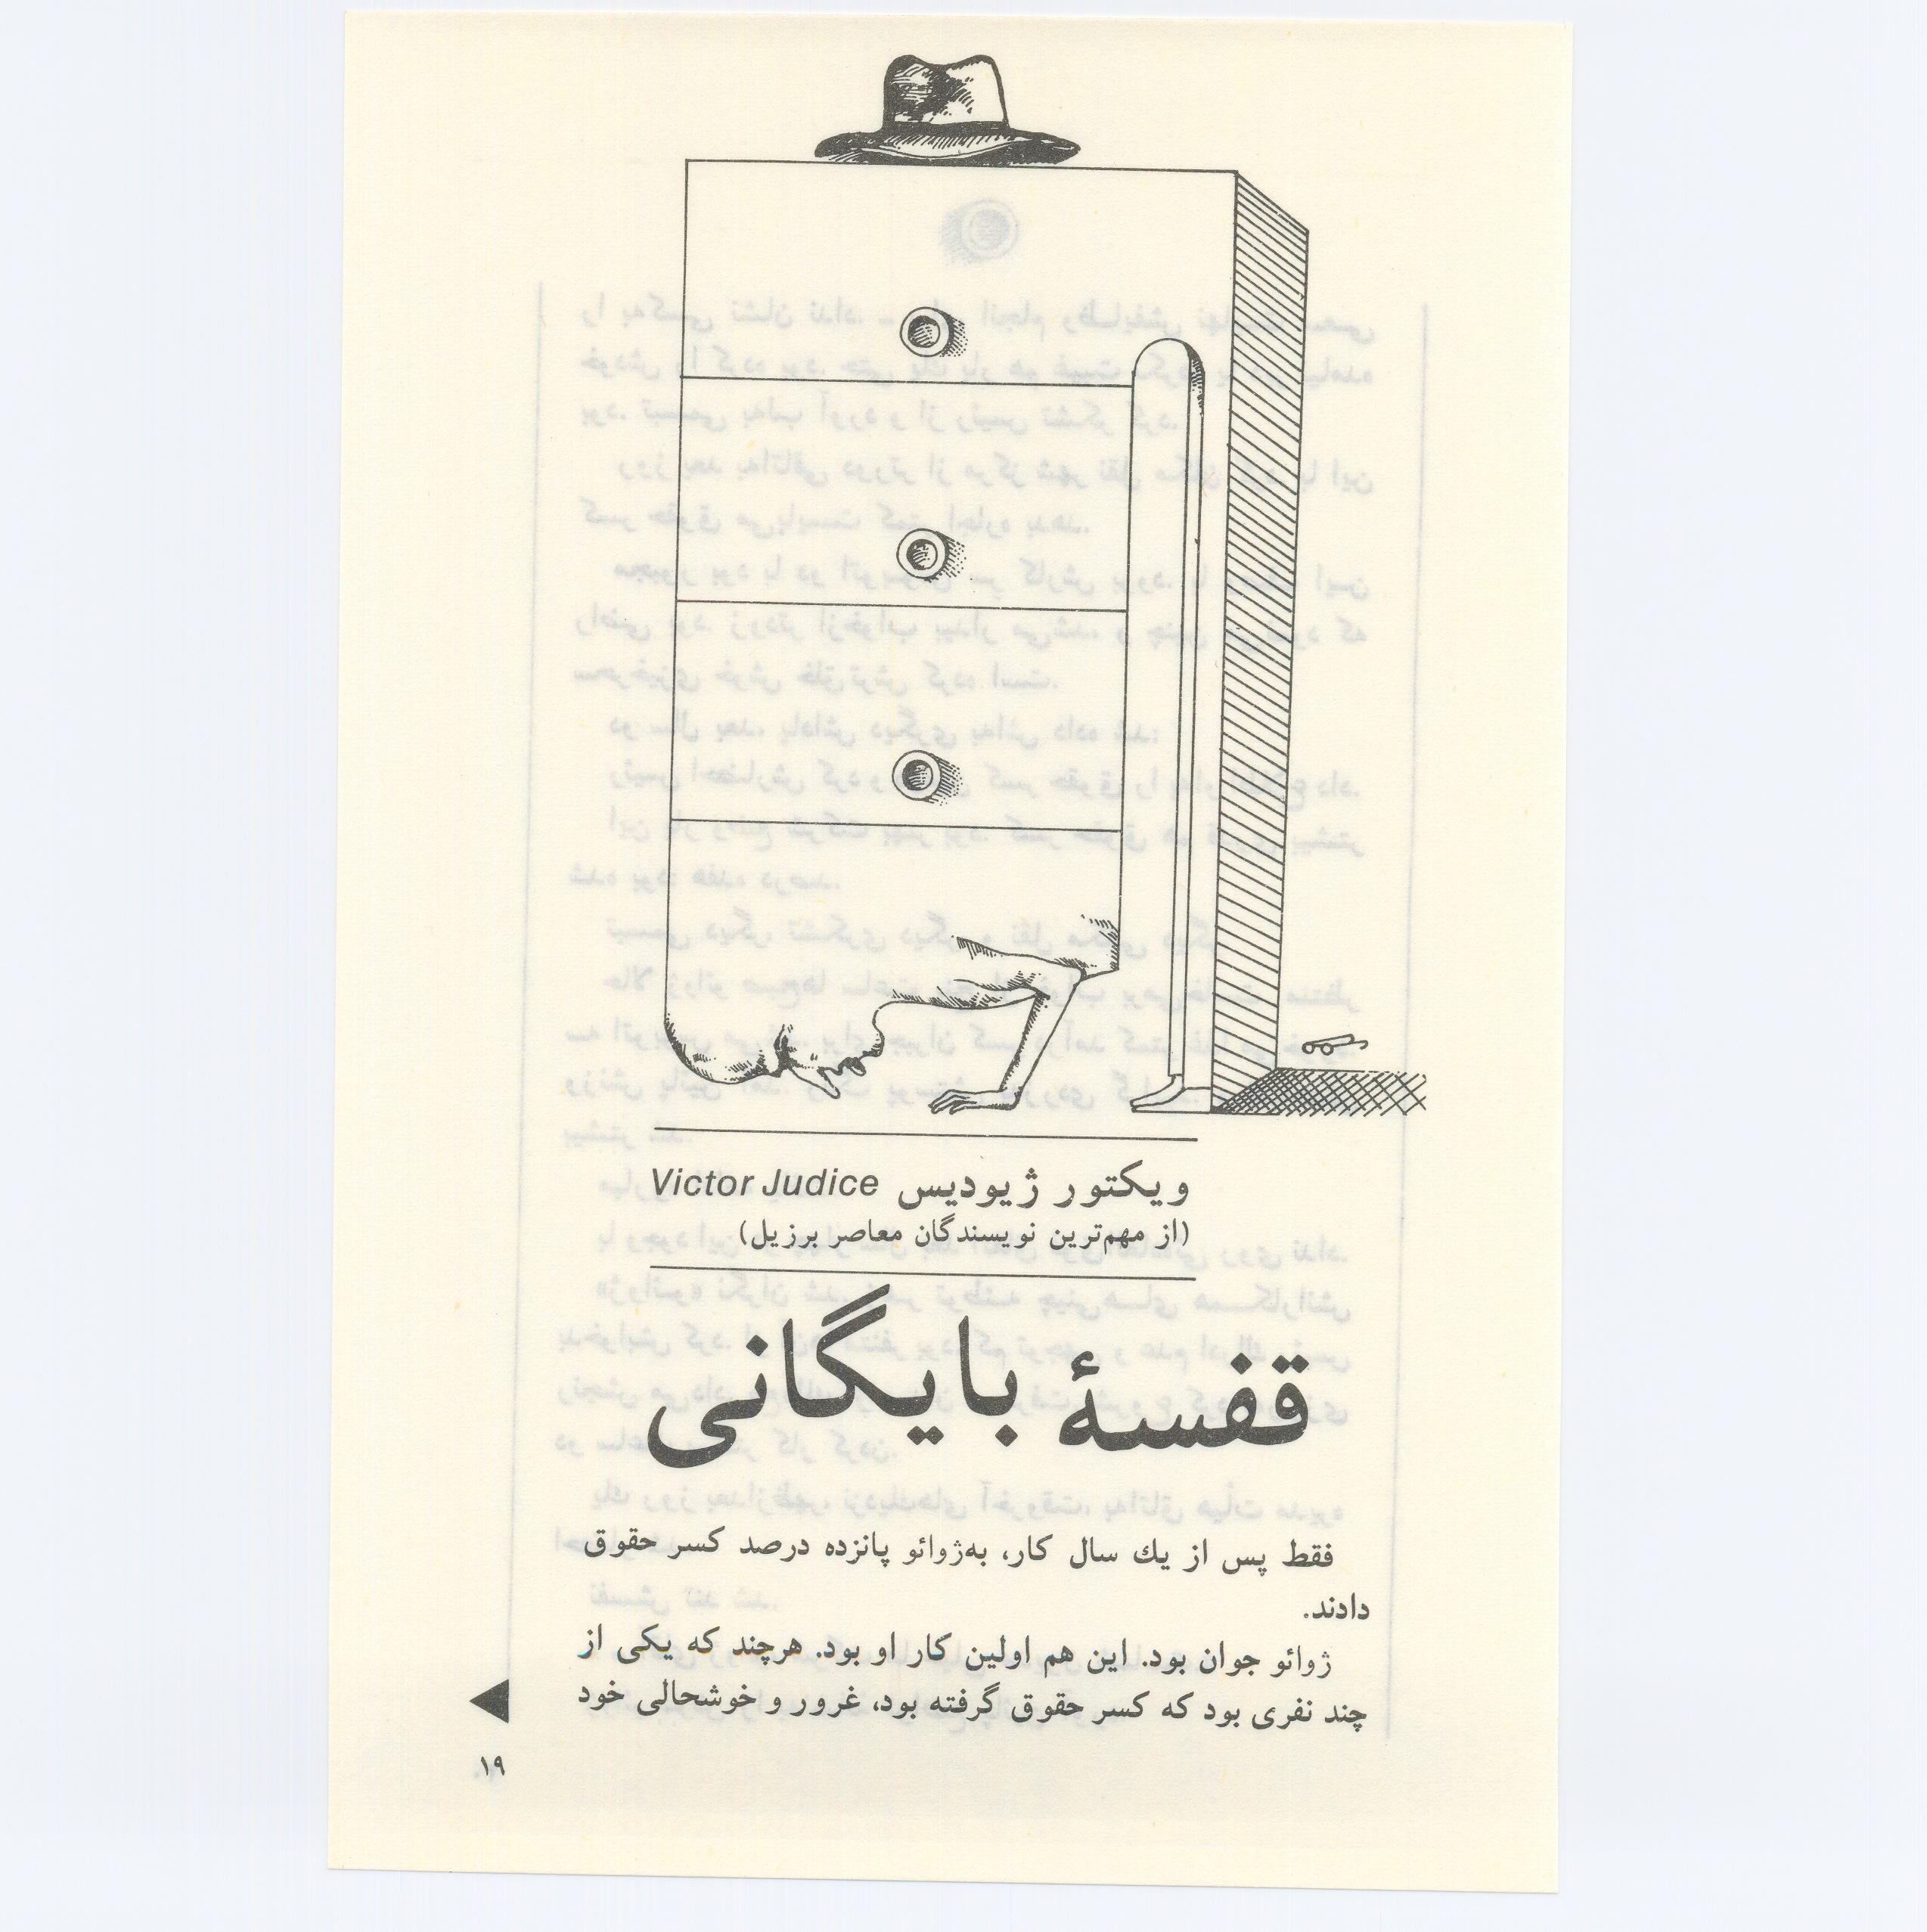 ویکتور ژیودیس Victor Judice
(از مهم‌ترین نویسندگان معاصر برزیل)
قفسهٔ بایگانی
فقط پس از یك سال کار، به‌ژوائو پانزده درصد کسر حقوق
دادند.
ژوائو جوان بود. این هم اولین کار او بود. هرچند که یکی از
چند نفری بود که کسر حقوق گرفته بود، غرور و خوشحالی خود
۱۹